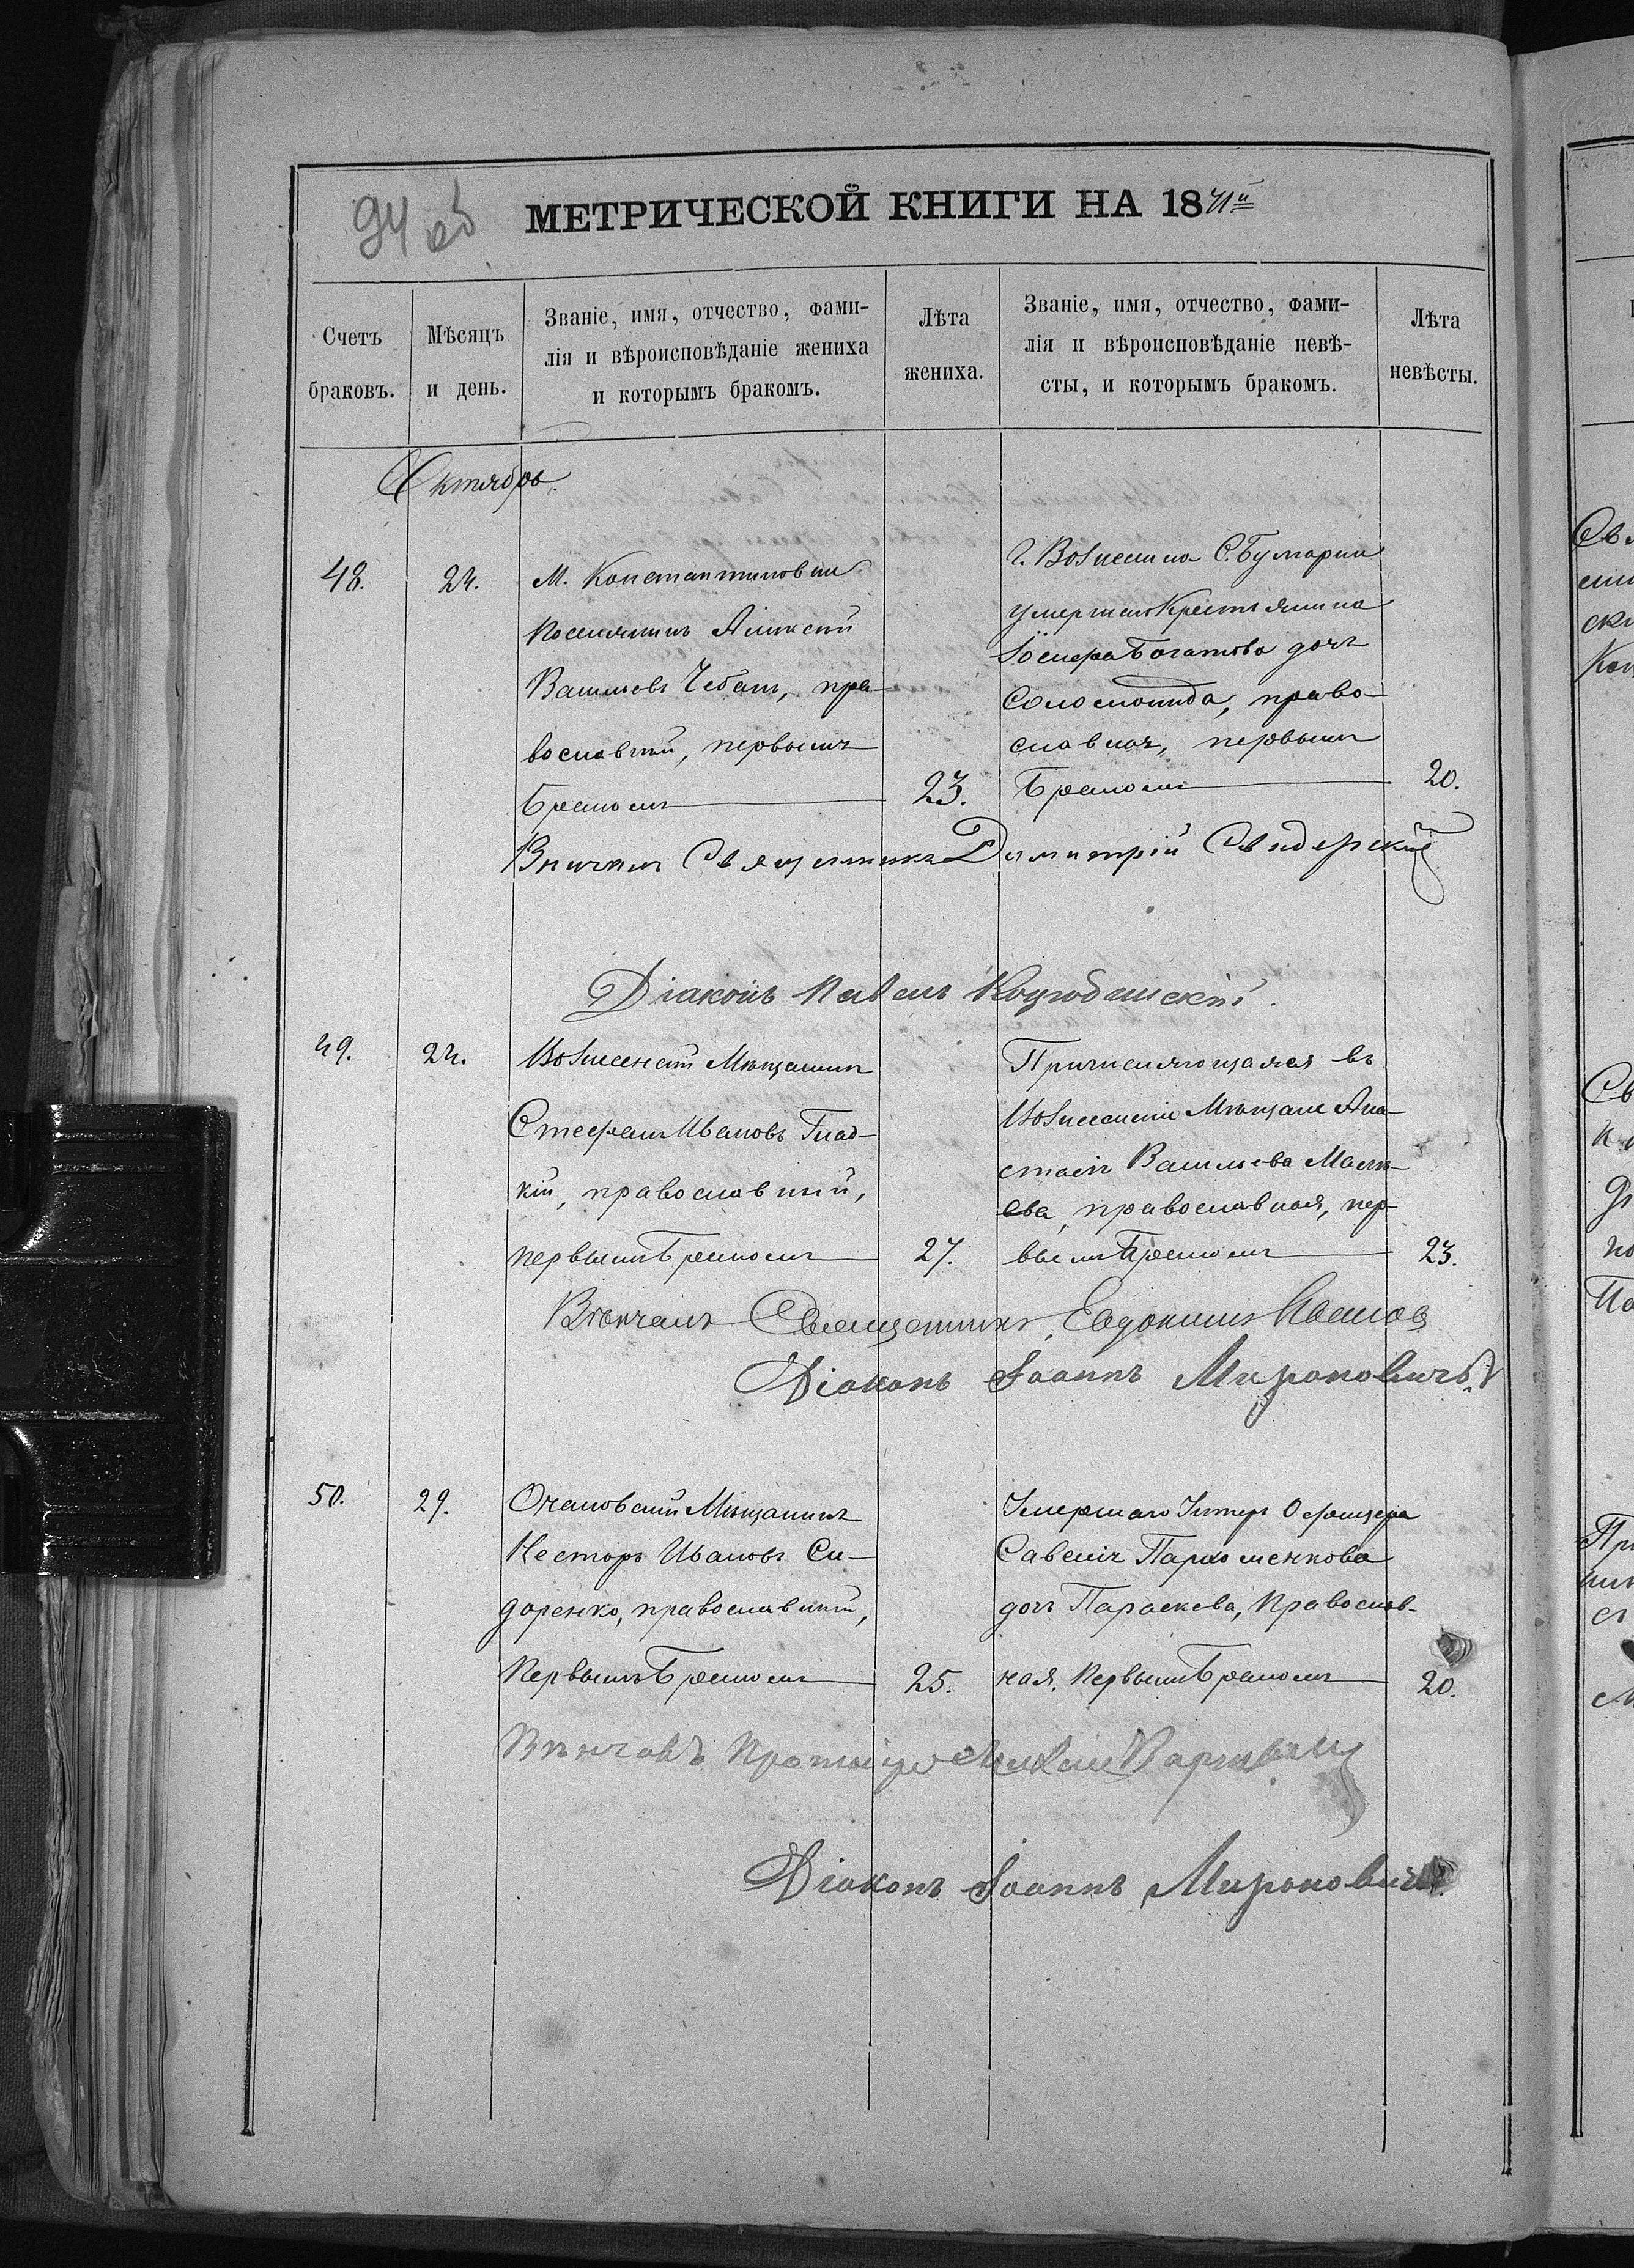 94 об
МЕТРИЧЕСКОЙ КНИГИ НА 1871й
Счетъ браковъ.
Мѣсяцъ и день.
Званіе, имя, отчество, фами-
лія и вѣроисповѣданіе жениха
и которымъ бракомъ.
Лѣта жениха.
Званіе, имя, отчество, фами-
лія и вѣроисповѣданіе невѣ-
сты, и которымъ бракомъ.
Лѣта невѣсты.
Октябрь.
48.
24.
М. Константиновки
Поселянинъ Алексѣй
Васильевъ Чебанъ, пра-
вославный, первымъ
бракомъ
23.
Г. Вознесенска С. Булгарки
умершаго Крестьянина
Іосифа Богатова дочь
Соломонида, право-
славная, первымъ
бракомъ
20.
Вѣнчалъ Священникъ Димитрій Свидерскій
Діаконъ Павелъ
49.
24.
Вознесенскій Мѣщанинъ
Стефанъ Ивановъ Глад-
кій, православный,
первымъ бракомъ
27.
Причисляющаяся въ
Вознесенскіе Мѣщане Ана-
стасія Васильева
ева, православная, пер-
вымъ бракомъ
23.
Вѣнчалъ Священникъ Евдокимъ Ивановъ
Діаконъ Іоаннъ Мироновичъ
50.
29.
Очаковскій Мѣщанинъ
Несторъ Ивановъ Си-
доренко, православный,
Первымъ бракомъ
25.
Умершаго Унтеръ Офицера
Савелія Пархоменкова
дочь Параскева, Православ-
ная, Первымъ бракомъ
20.
Вѣнчалъ Протоіерей
Діаконъ Іоаннъ Мироновичъ.